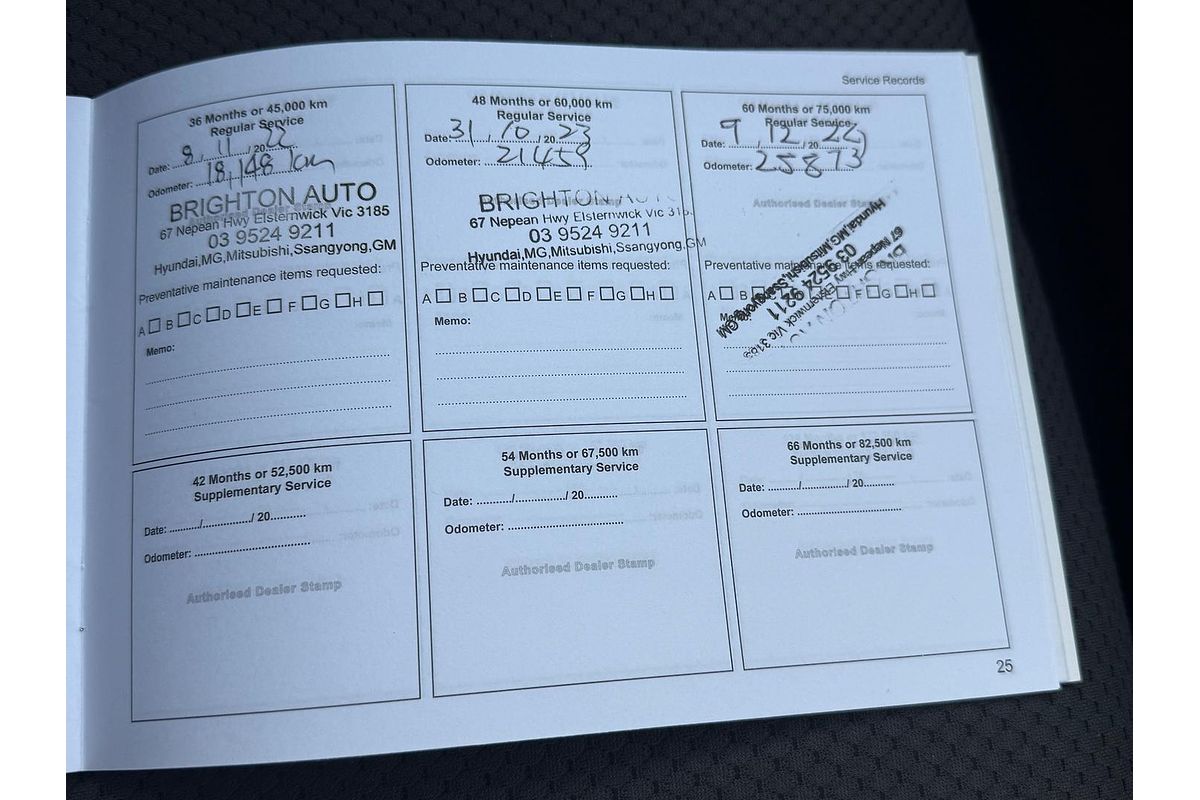 Service Records
36 Months or 45,000 km
Regular Service
Date: 8 / 11 / 2022
Odometer: 18,148 km
BRIGHTON AUTO
Authorised Dealer Stamp
67 Nepean Hwy Elsternwick Vic 3185
03 9524 9211
Hyundai,MG,Mitsubishi,Ssangyong,GM
Preventative maintenance items requested:
A B C D E F G H
Memo:
48 Months or 60,000 km
Regular Service
Date: 31 / 10 / 2023
Odometer: 21459
BRIGHTON AU
67 Nepean Hwy Elsternwick Vic 318
03 9524 9211
Hyundai,MG,Mitsubishi,Ssangyong,GM
Preventative maintenance items requested:
A B C D E F G H
Memo:
60 Months or 75,000 km
Regular Service
Date: 9 / 12 / 20
Odometer: 25873
Authorised Dealer Stamp
Preventative maintenance items requested:
A B C F G H
Memo:
67 Nepean Hwy Elsternwick Vic 3185
03 9524 9211
Hyundai,MG,Mitsubishi,Ssangyong,GM
42 Months or 52,500 km
Supplementary Service
Date: ........../................/ 20...........
Odometer: .......................................
Authorised Dealer Stamp
54 Months or 67,500 km
Supplementary Service
Date: ........../................/ 20...........
Odometer: .......................................
Authorised Dealer Stamp
66 Months or 82,500 km
Supplementary Service
Date: ........../................/ 20...........
Odometer: .......................................
Authorised Dealer Stamp
25